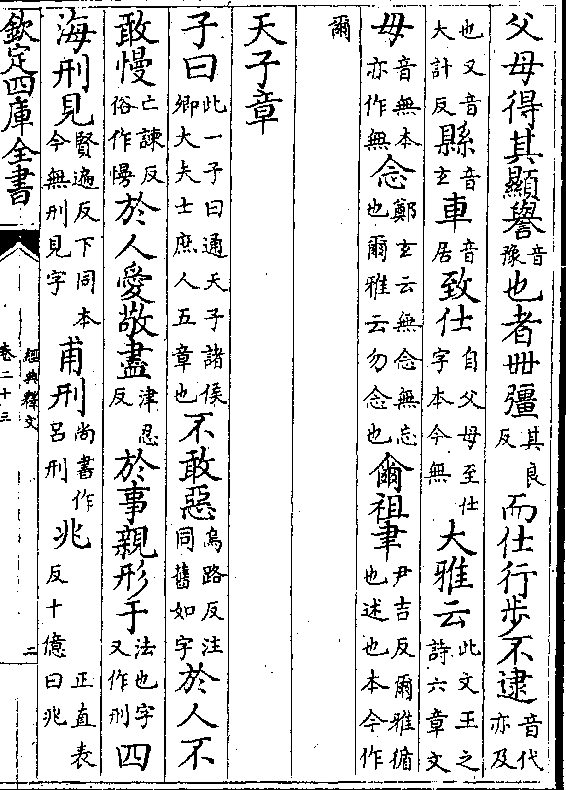 父母得其顯譽音豫也者丗彊其良反而仕行步不逮音代亦及
也又音大計反縣音玄車音居致仕自父母至仕字本今無大雅云此文王之詩六章文
毋音無本亦作無念鄭玄云無念無忘也爾雅云勿念也爾祖聿尹吉反爾雅循也述也本今作
爾
天子章
子曰此一子曰通天子諸侯卿大夫士庶人五章也不敢惡烏路反注同舊如字於人不
敢慢亡諫反俗作於人愛敬盡津忍反於事親形于法也字又作刑四
海刑見賢遍反下同本今無刑見字甫刑尚書作呂刑兆正直表反十億曰兆
欽定四庫全書
經典釋文
卷二十三
二